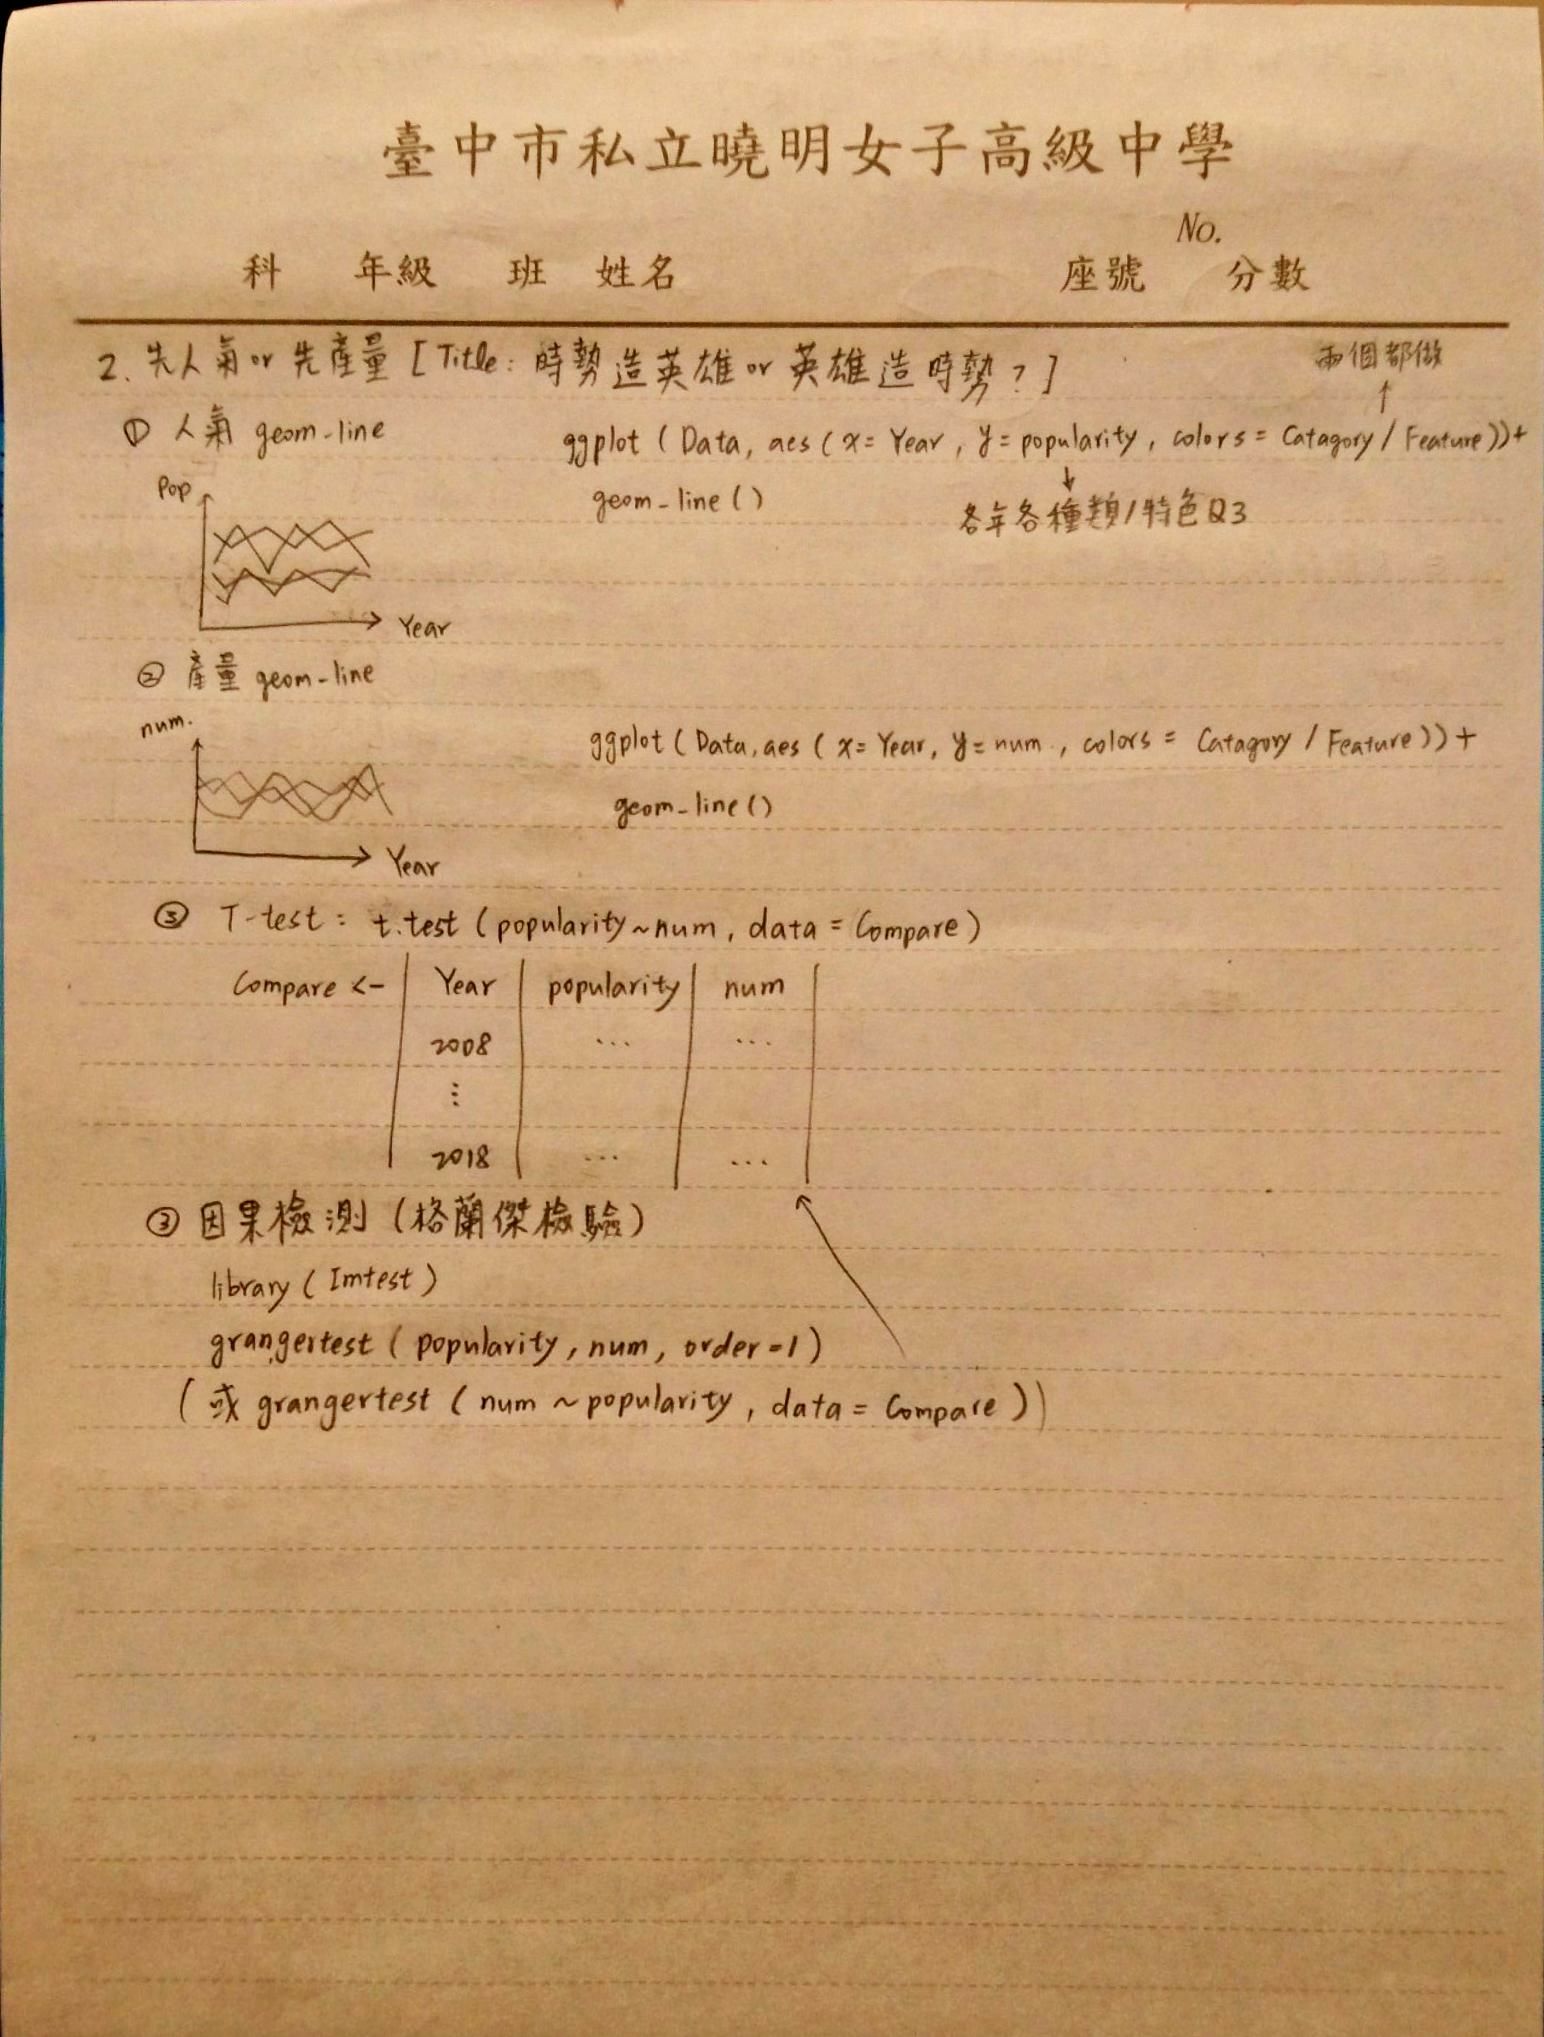 臺中市私立曉明女子高級中學
No.
科 年級 班 姓名 座號 分數
2. 先人氣 or 先產量 [Title: 時勢造英雄 or 英雄造時勢?]
兩個都做
① 人氣 geom-line
ggplot (Data, aes (x= Year, y= popularity, colors = Catagory / Feature))+
geom-line()
各年各種類/特色Q3
Pop
Year
② 產量 geom-line
num.
ggplot (Data, aes (x= Year, y= num., colors = Catagory / Feature)) +
geom-line()
Year
③ T-test: t.test (popularity~num, data = Compare)
Compare <- Year popularity num
2008 ... ...
⋮
2018 ... ...
③ 因果檢測 (格蘭傑檢驗)
library (Imtest)
grangertest (popularity, num, order=1)
(或 grangertest (num ~ popularity, data = Compare))